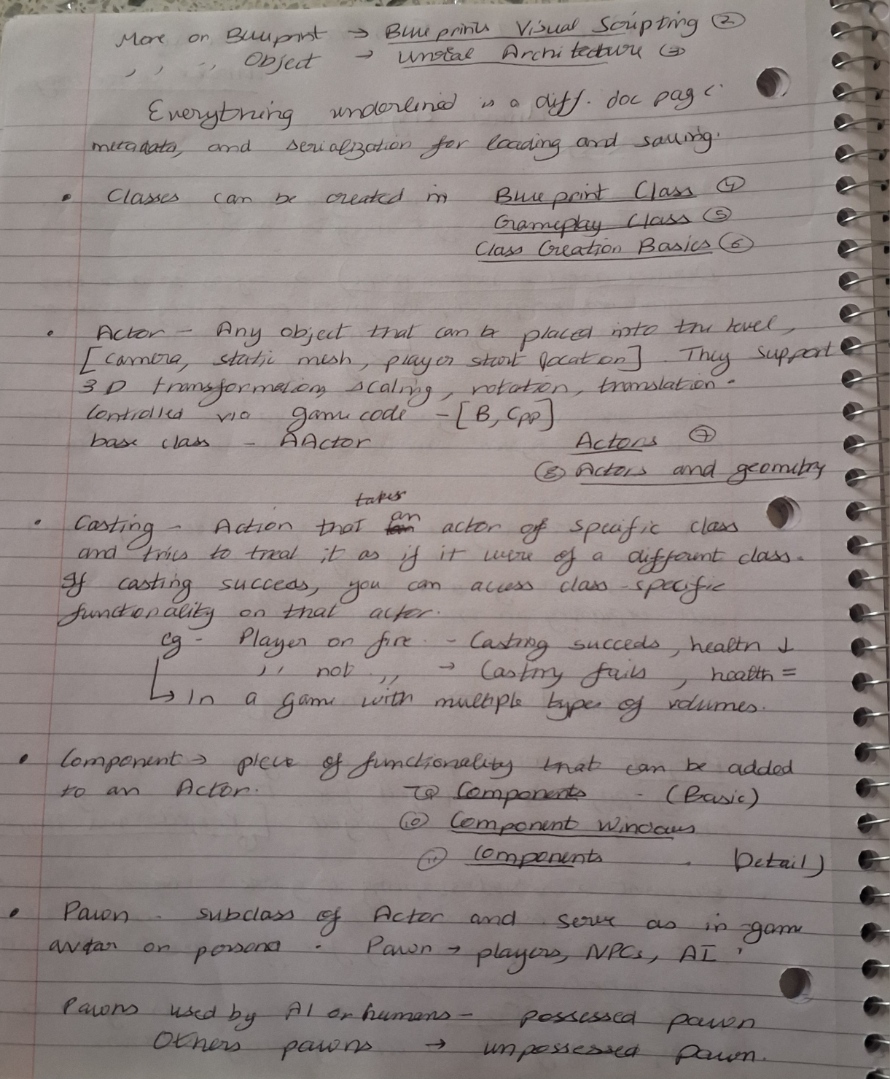 More on Blueprint → Blueprints Visual Scripting ②
,, ,, Object → Unreal Architecture ③
Everything underlined is a diff. doc page.
metadata, and serialization for loading and saving.
• Classes can be created in Blueprint Class ④
Gameplay Class ⑤
Class Creation Basics ⑥
• Actor - Any object that can be placed into the level,
[camera, static mesh, player start location]. They support
3D transformation, scaling, rotation, translation.
Controlled via game code - [B, Cpp]
base class - AActor Actors ⑦
⑧ Actors and geometry
takes
• Casting - Action that an actor of specific class
and tries to treat it as if it were of a different class.
If casting success, you can access class-specific
functionality on that actor.
eg - Player on fire - Casting succeds, health ↓
,, not ,, → Casting fails, health =
↳ In a game with multiple types of volumes.
• Component → piece of functionality that can be added
to an Actor. ⑨ Components - (Basic)
⑩ Component Windows
⑪ Components - Detail)
• Pawn - subclass of Actor and serve as in-game
avatar or persona. Pawn → players, NPCs, AI.
Pawns used by AI or humans - possessed pawn
Others pawns → unpossessed pawn.